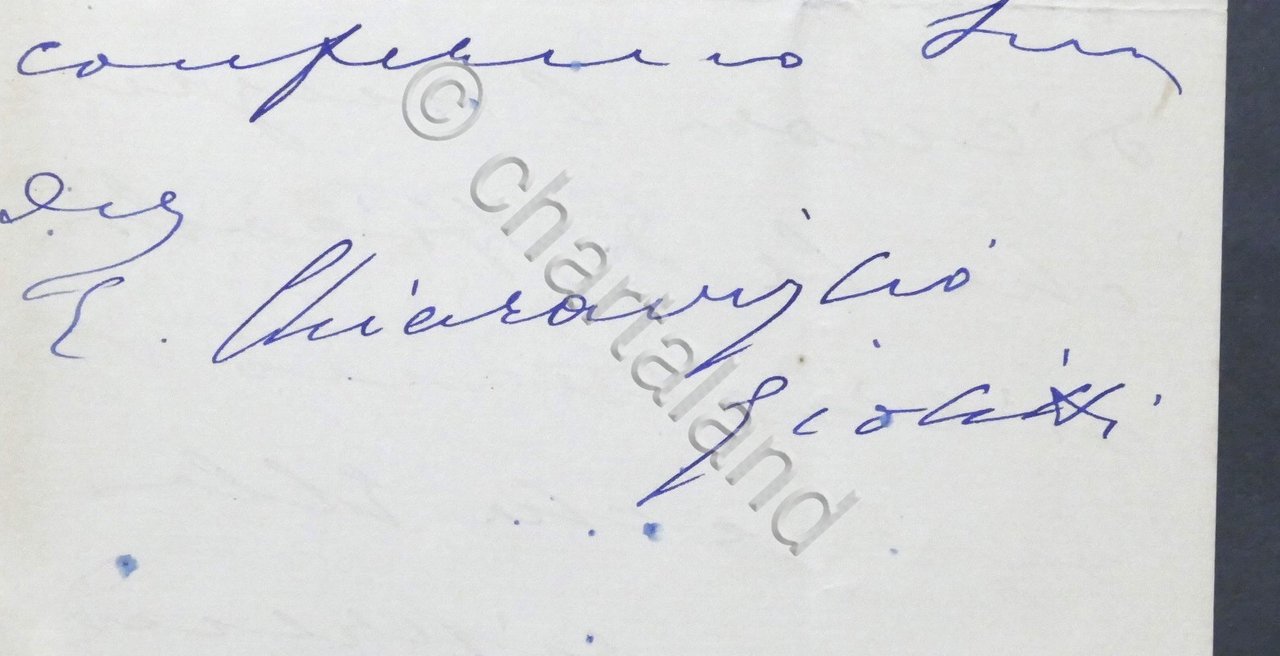 confermo
E. Chiaraviglio
Giolitti
© chartaland